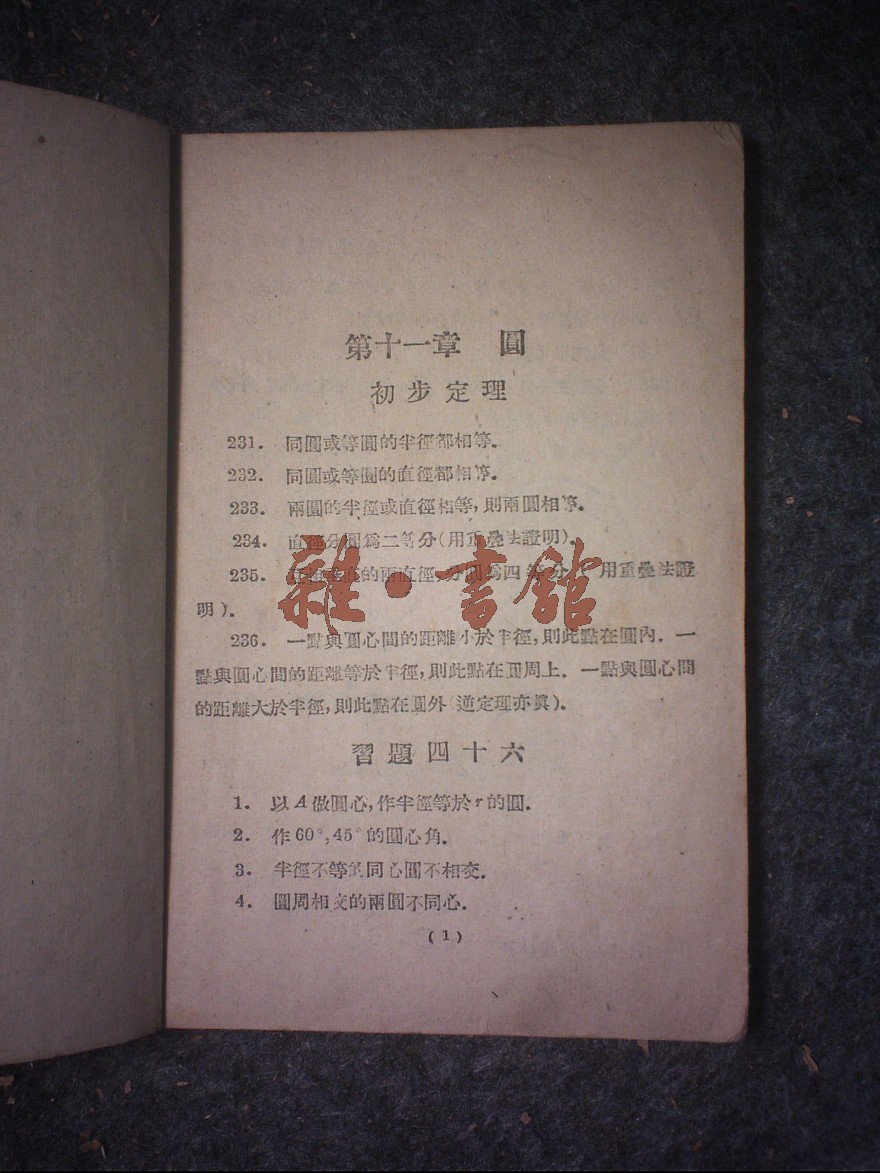 第十一章 圓
初步定理
231. 同圓或等圓的半徑都相等.
232. 同圓或等圓的直徑都相等.
233. 兩圓的半徑或直徑相等,則兩圓相等.
234. 直徑分圓爲二等分(用重疊法證明).
235. 互相垂直的兩直徑,分圓爲四等分(用重疊法證
明).
雜·書館
236. 一點與圓心間的距離小於半徑,則此點在圓內. 一
點與圓心間的距離等於半徑,則此點在圓周上. 一點與圓心間
的距離大於半徑,則此點在圓外(逆定理亦眞).
習題四十六
1. 以A做圓心,作半徑等於r的圓.
2. 作60°,45°的圓心角.
3. 半徑不等的同心圓不相交.
4. 圓周相交的兩圓不同心.
(1)